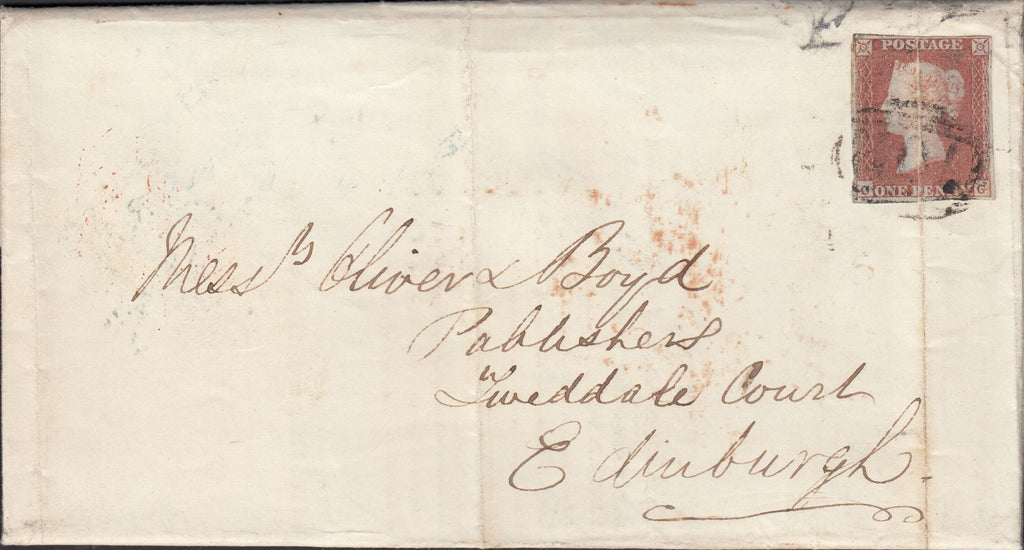 POSTAGE
ONE PENNY
G
Mess.rs Oliver & Boyd
Publishers
Tweddale Court
Edinburgh.